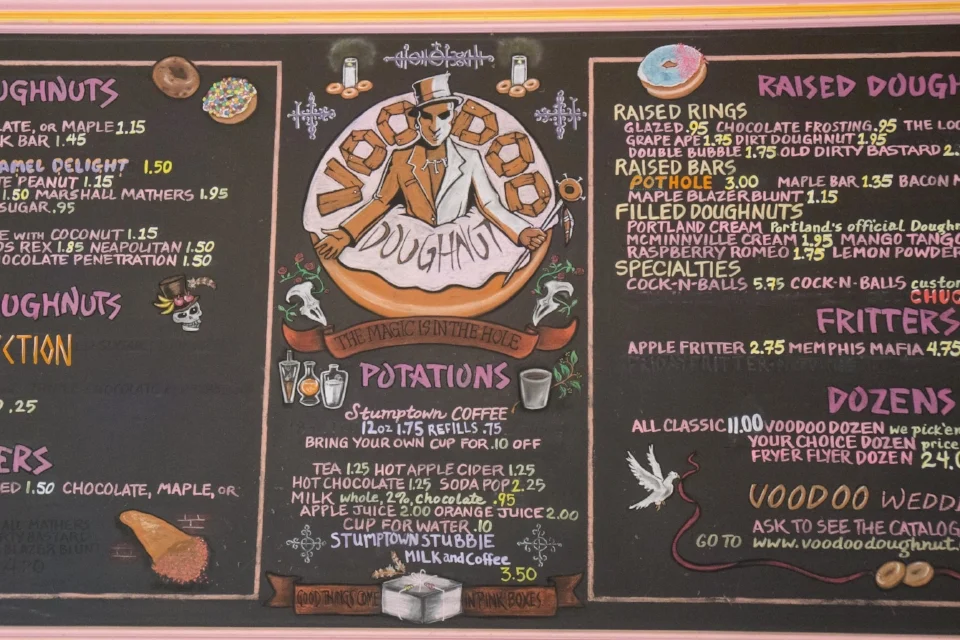 UGHNUTS
LATE, OR MAPLE 1.15
K BAR 1.45
AMEL DELIGHT! 1.50
PEANUT 1.15
1.50 MARSHALL MATHERS 1.95
SUGAR .95
E WITH COCONUT 1.15
DS REX 1.85 NEAPOLITAN 1.50
HOCOLATE PENETRATION 1.50
UGHNUTS
CTION
.25
ERS
ED 1.50 CHOCOLATE, MAPLE, OR
VOODOO
DOUGHNUT
THE MAGIC IS IN THE HOLE
POTATIONS
Stumptown COFFEE
12oz 1.75 REFILLS .75
BRING YOUR OWN CUP FOR .10 OFF
TEA 1.25 HOT APPLE CIDER 1.25
HOT CHOCOLATE 1.25 SODA POP 2.25
MILK whole, 2%, chocolate .95
APPLE JUICE 2.00 ORANGE JUICE 2.00
CUP FOR WATER .10
STUMPTOWN STUBBIE
MILK and Coffee
3.50
GOOD THINGS COME IN PINK BOXES
RAISED DOUGH
RAISED RINGS
GLAZED .95 CHOCOLATE FROSTING .95 THE LOO
GRAPE APE 1.75 DIRT DOUGHNUT 1.95
DOUBLE BUBBLE 1.75 OLD DIRTY BASTARD 2.
RAISED BARS
POTHOLE 3.00 MAPLE BAR 1.35 BACON M
MAPLE BLAZER BLUNT 1.15
FILLED DOUGHNUTS
PORTLAND CREAM Portland's official Doughn
MCMINNVILLE CREAM 1.95 MANGO TANGO
RASPBERRY ROMEO 1.75 LEMON POWDER
SPECIALTIES
COCK-N-BALLS 5.75 COCK-N-BALLS custom
CHUC
FRITTERS
APPLE FRITTER 2.75 MEMPHIS MAFIA 4.75
DOZENS
ALL CLASSIC 11.00 VOODOO DOZEN we pick'em
YOUR CHOICE DOZEN price
FRYER FLYER DOZEN 24.0
VOODOO WEDDI
ASK TO SEE THE CATALOG
GO TO www.voodoodoughnut.